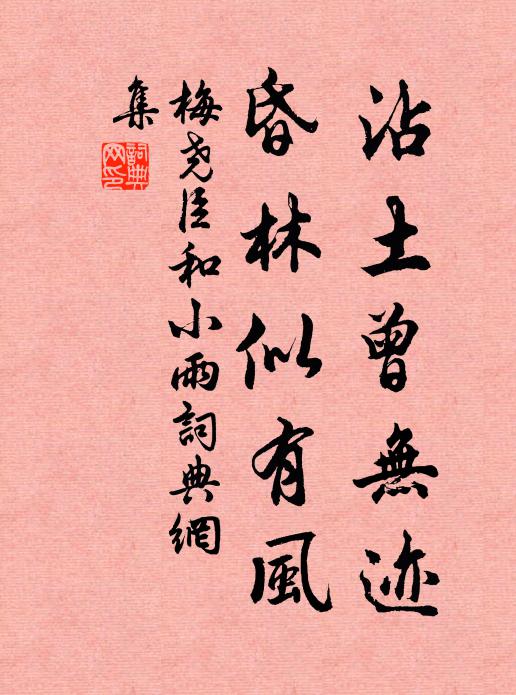 沾土曾無迹
昏林似有風
梅堯臣和小雨詞典網
集
詞典
网印